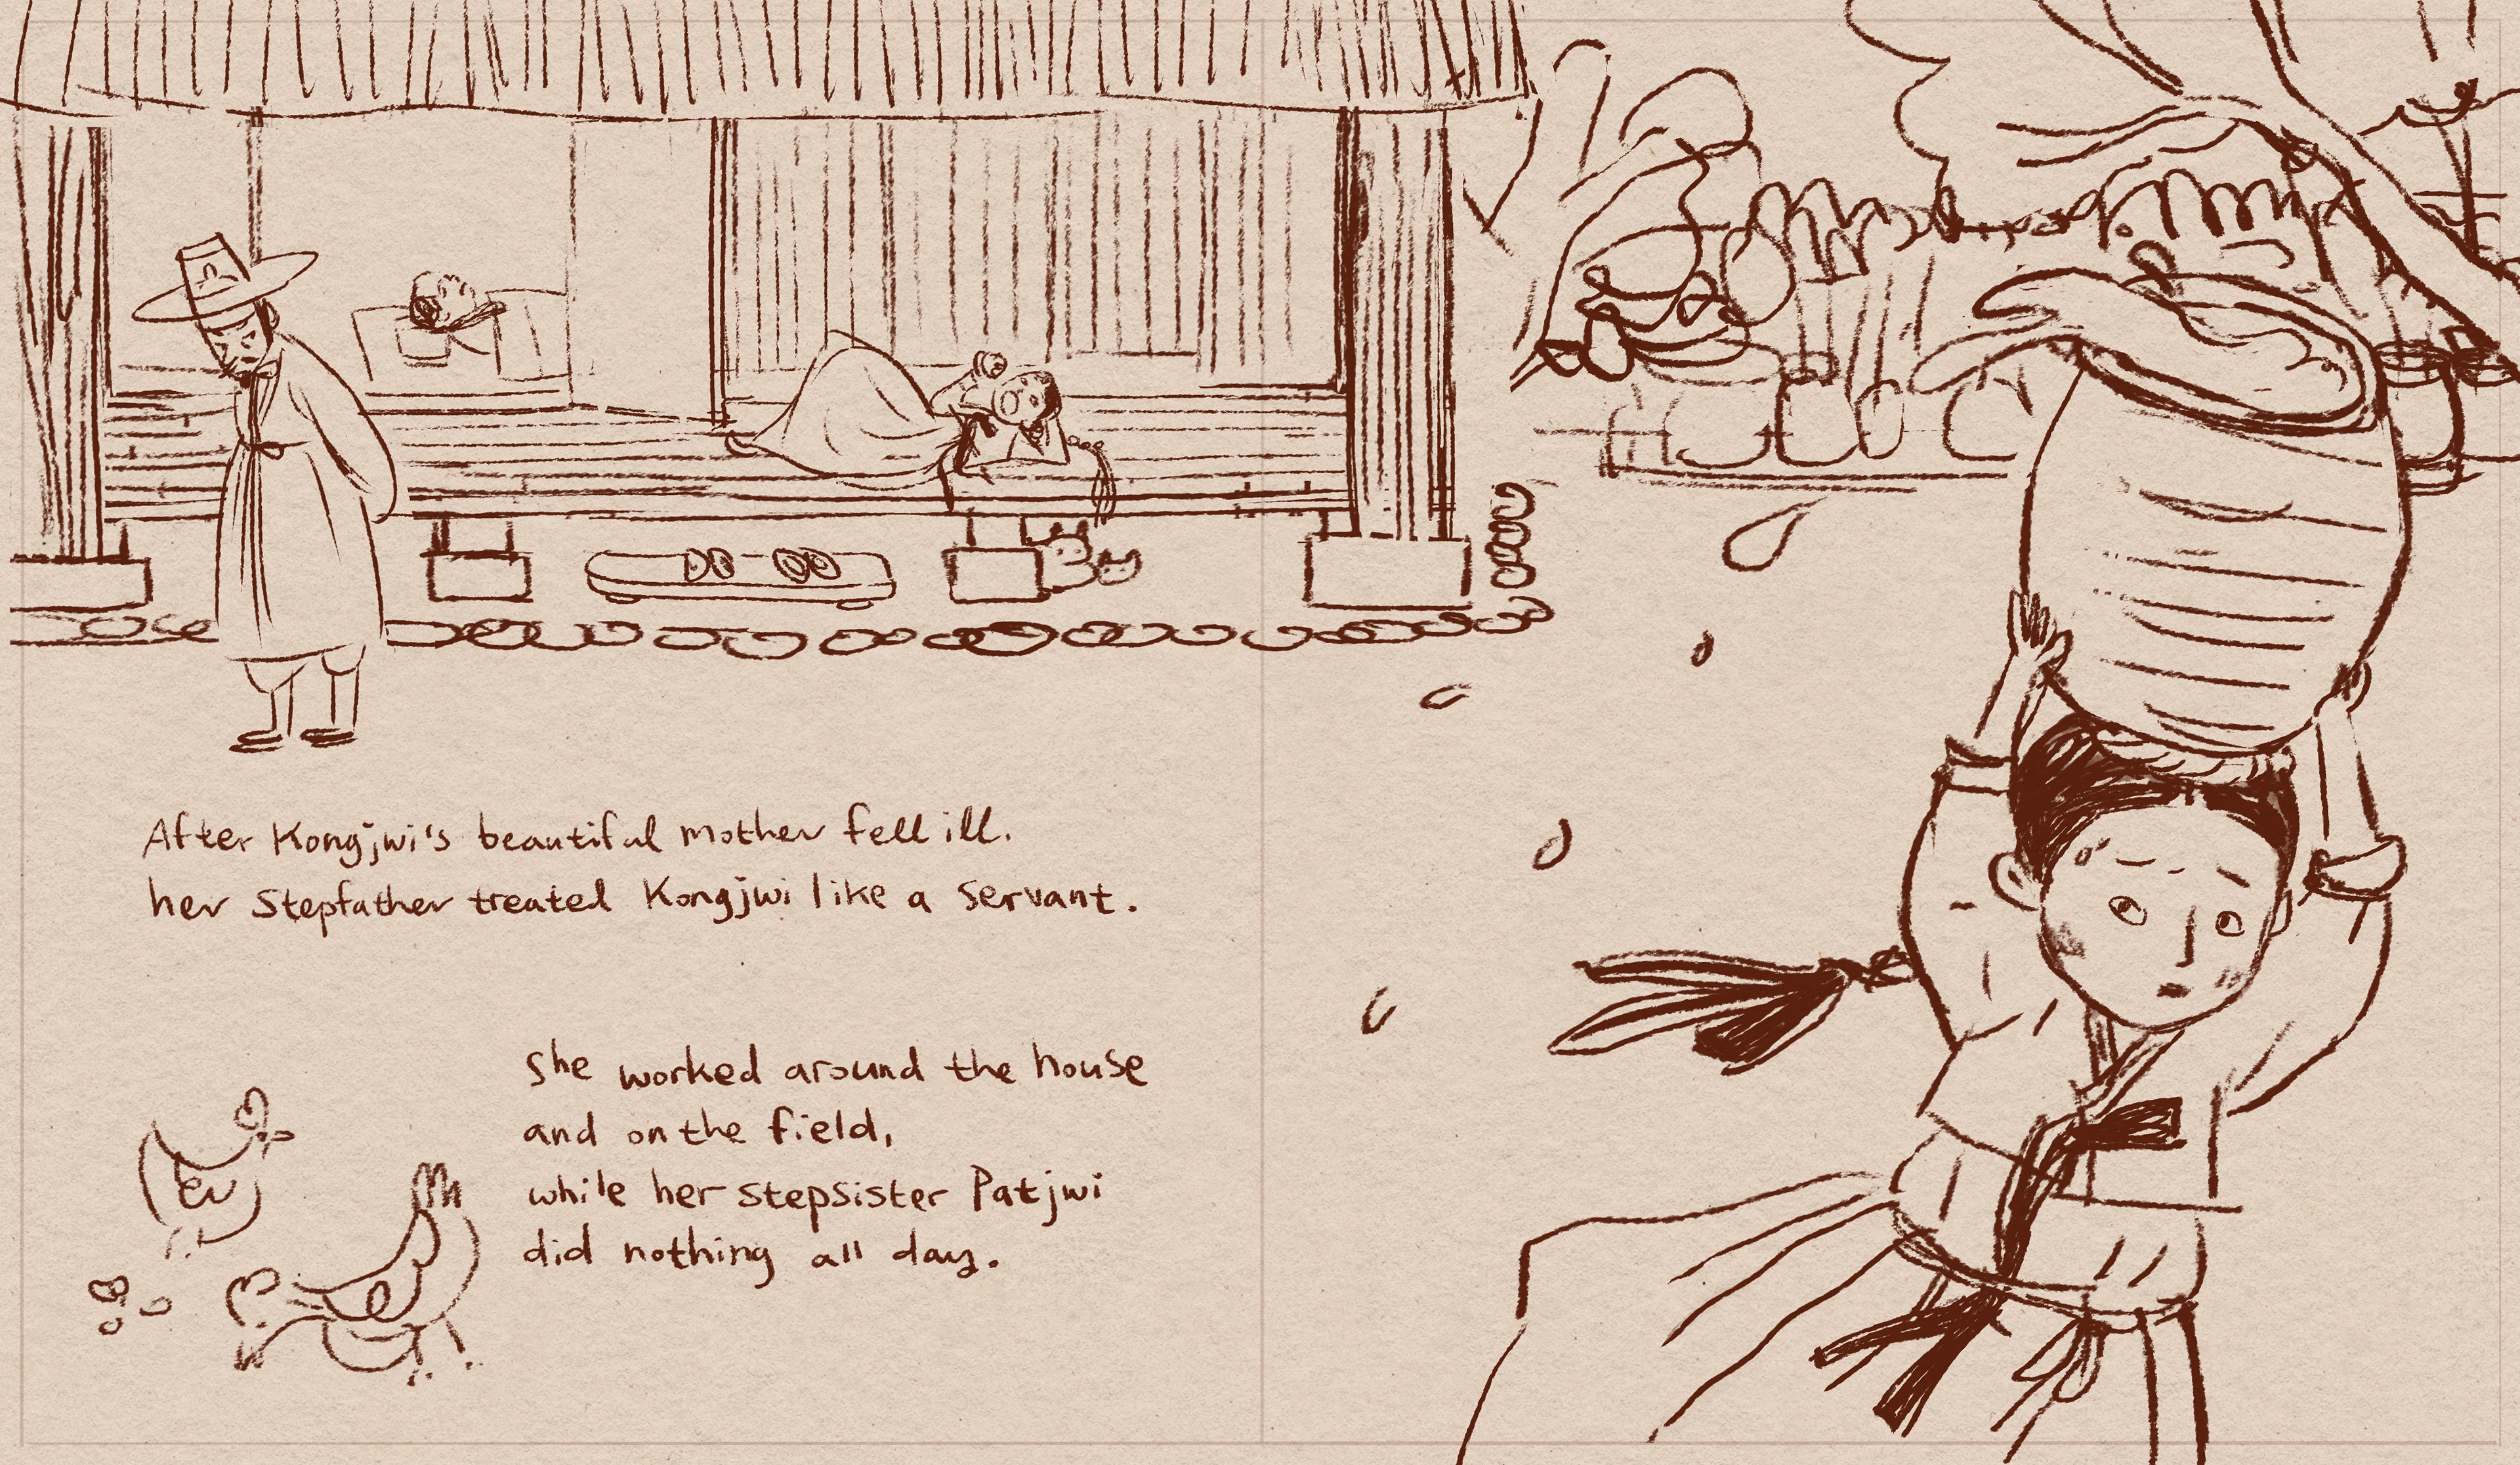 After Kongjwi's beautiful mother fell ill.
her Stepfather treated Kongjwi like a servant.
She worked around the house
and on the field,
while her stepsister Patjwi
did nothing all day.